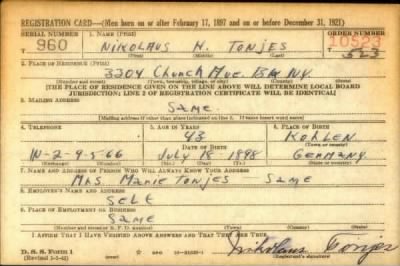 REGISTRATION CARD—(Men born on or after February 17, 1897 and on or before December 31, 1921)
SERIAL NUMBER 1. NAME (Print) ORDER NUMBER
960 NIKOLAUS H. TONJES 10523
(First) (Middle) (Last) 523
2. PLACE OF RESIDENCE (Print)
3304 Church Ave. N.Y.
(Number and street) (Town, township, village, or city) (County) (State)
[THE PLACE OF RESIDENCE GIVEN ON THE LINE ABOVE WILL DETERMINE LOCAL BOARD
JURISDICTION; LINE 2 OF REGISTRATION CERTIFICATE WILL BE IDENTICAL]
3. MAILING ADDRESS
Same
[Mailing address if other than place indicated on line 2. If same insert word same]
4. TELEPHONE 5. AGE IN YEARS 6. PLACE OF BIRTH
43
DATE OF BIRTH (Town or county)
IN-2-9-5-66 July 18 1898 Germany
(Exchange) (Number) (Mo.) (Day) (Yr.) (State or country)
7. NAME AND ADDRESS OF PERSON WHO WILL ALWAYS KNOW YOUR ADDRESS
Mrs Marie Tonjes Same
8. EMPLOYER'S NAME AND ADDRESS
Self
9. PLACE OF EMPLOYMENT OR BUSINESS
Same
(Number and street or R. F. D. number) (Town) (County) (State)
I AFFIRM THAT I HAVE VERIFIED ABOVE ANSWERS AND THAT THEY ARE TRUE.
D. S. S. Form 1 Nikolaus Tonjes
(Registrant's signature)